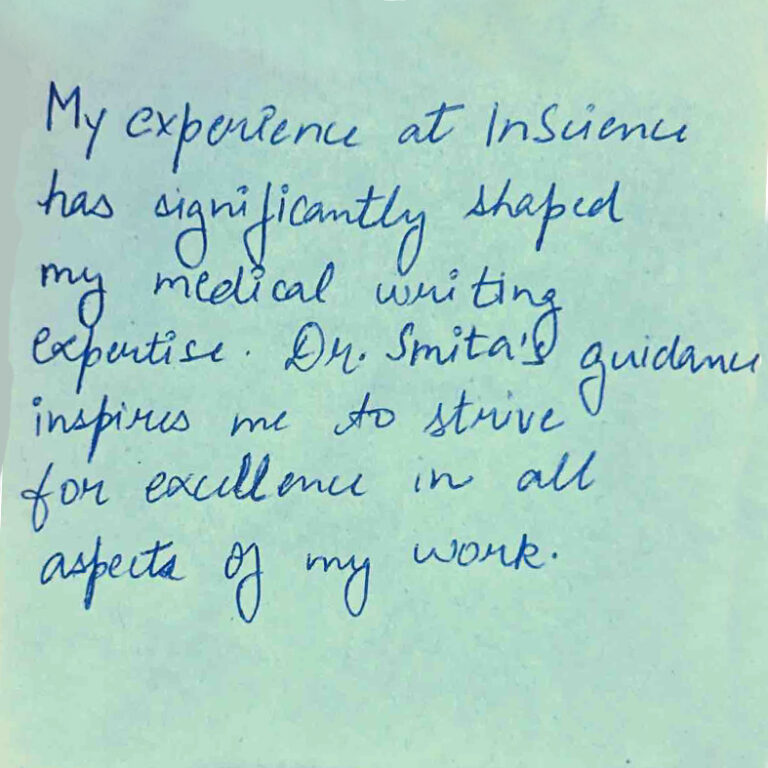 My experience at InScience
has significantly shaped
my medical writing
expertise. Dr. Smita's guidance
inspires me to strive
for excellence in all
aspects of my work.